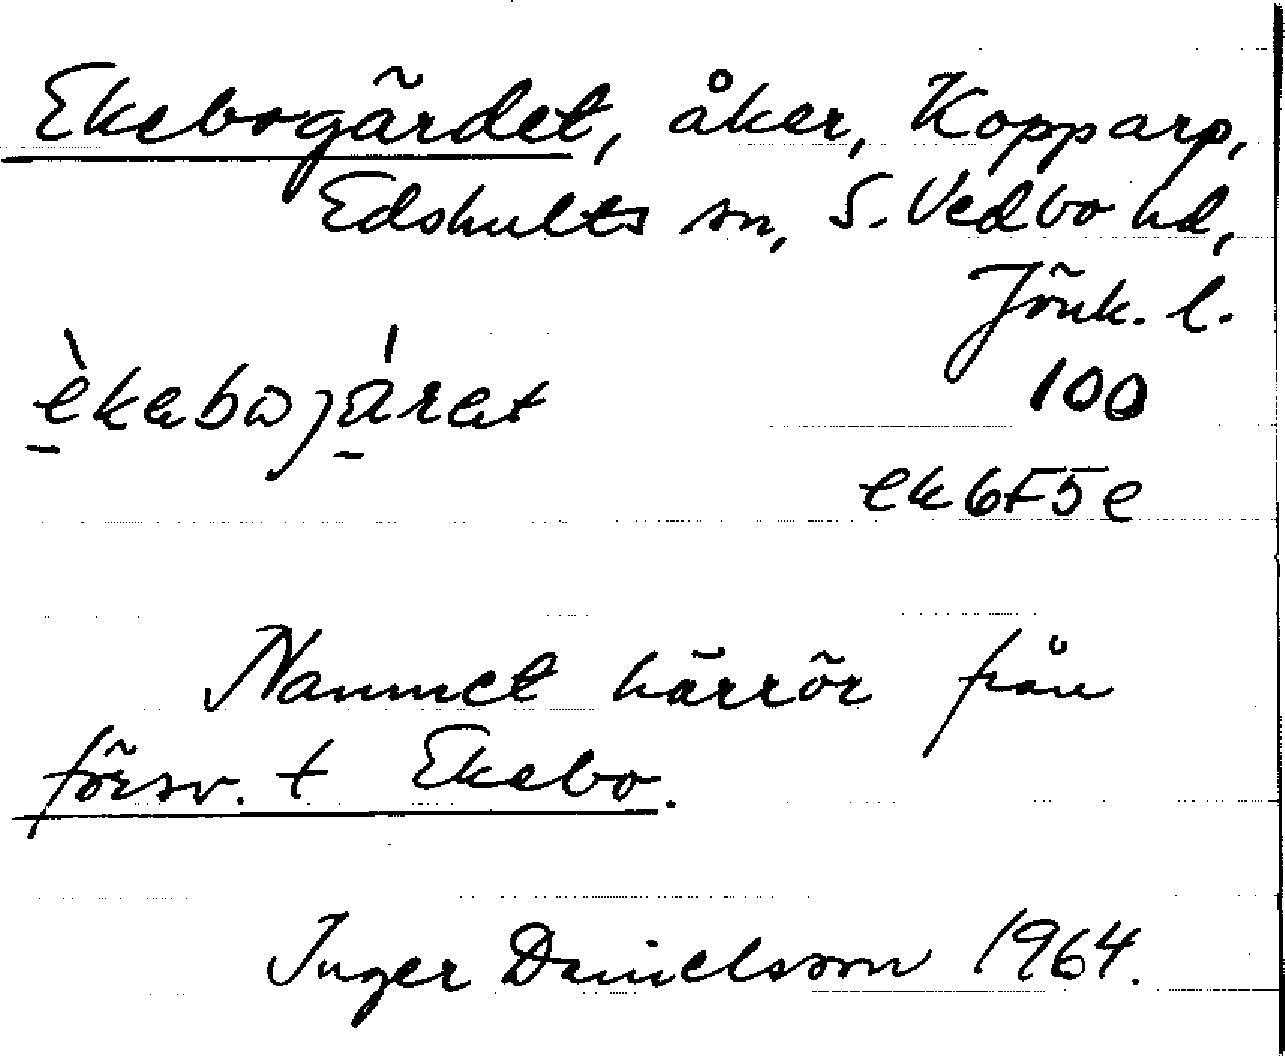 Ekebogärdet, åker, Kopparp,
Edshults sn, S. Vedbo hd,
Jönk. l.
èkabojárat
100
ek 6F5e
Namnet härrör från
försv. t Ekebo.
Inger Danielsson 1964.